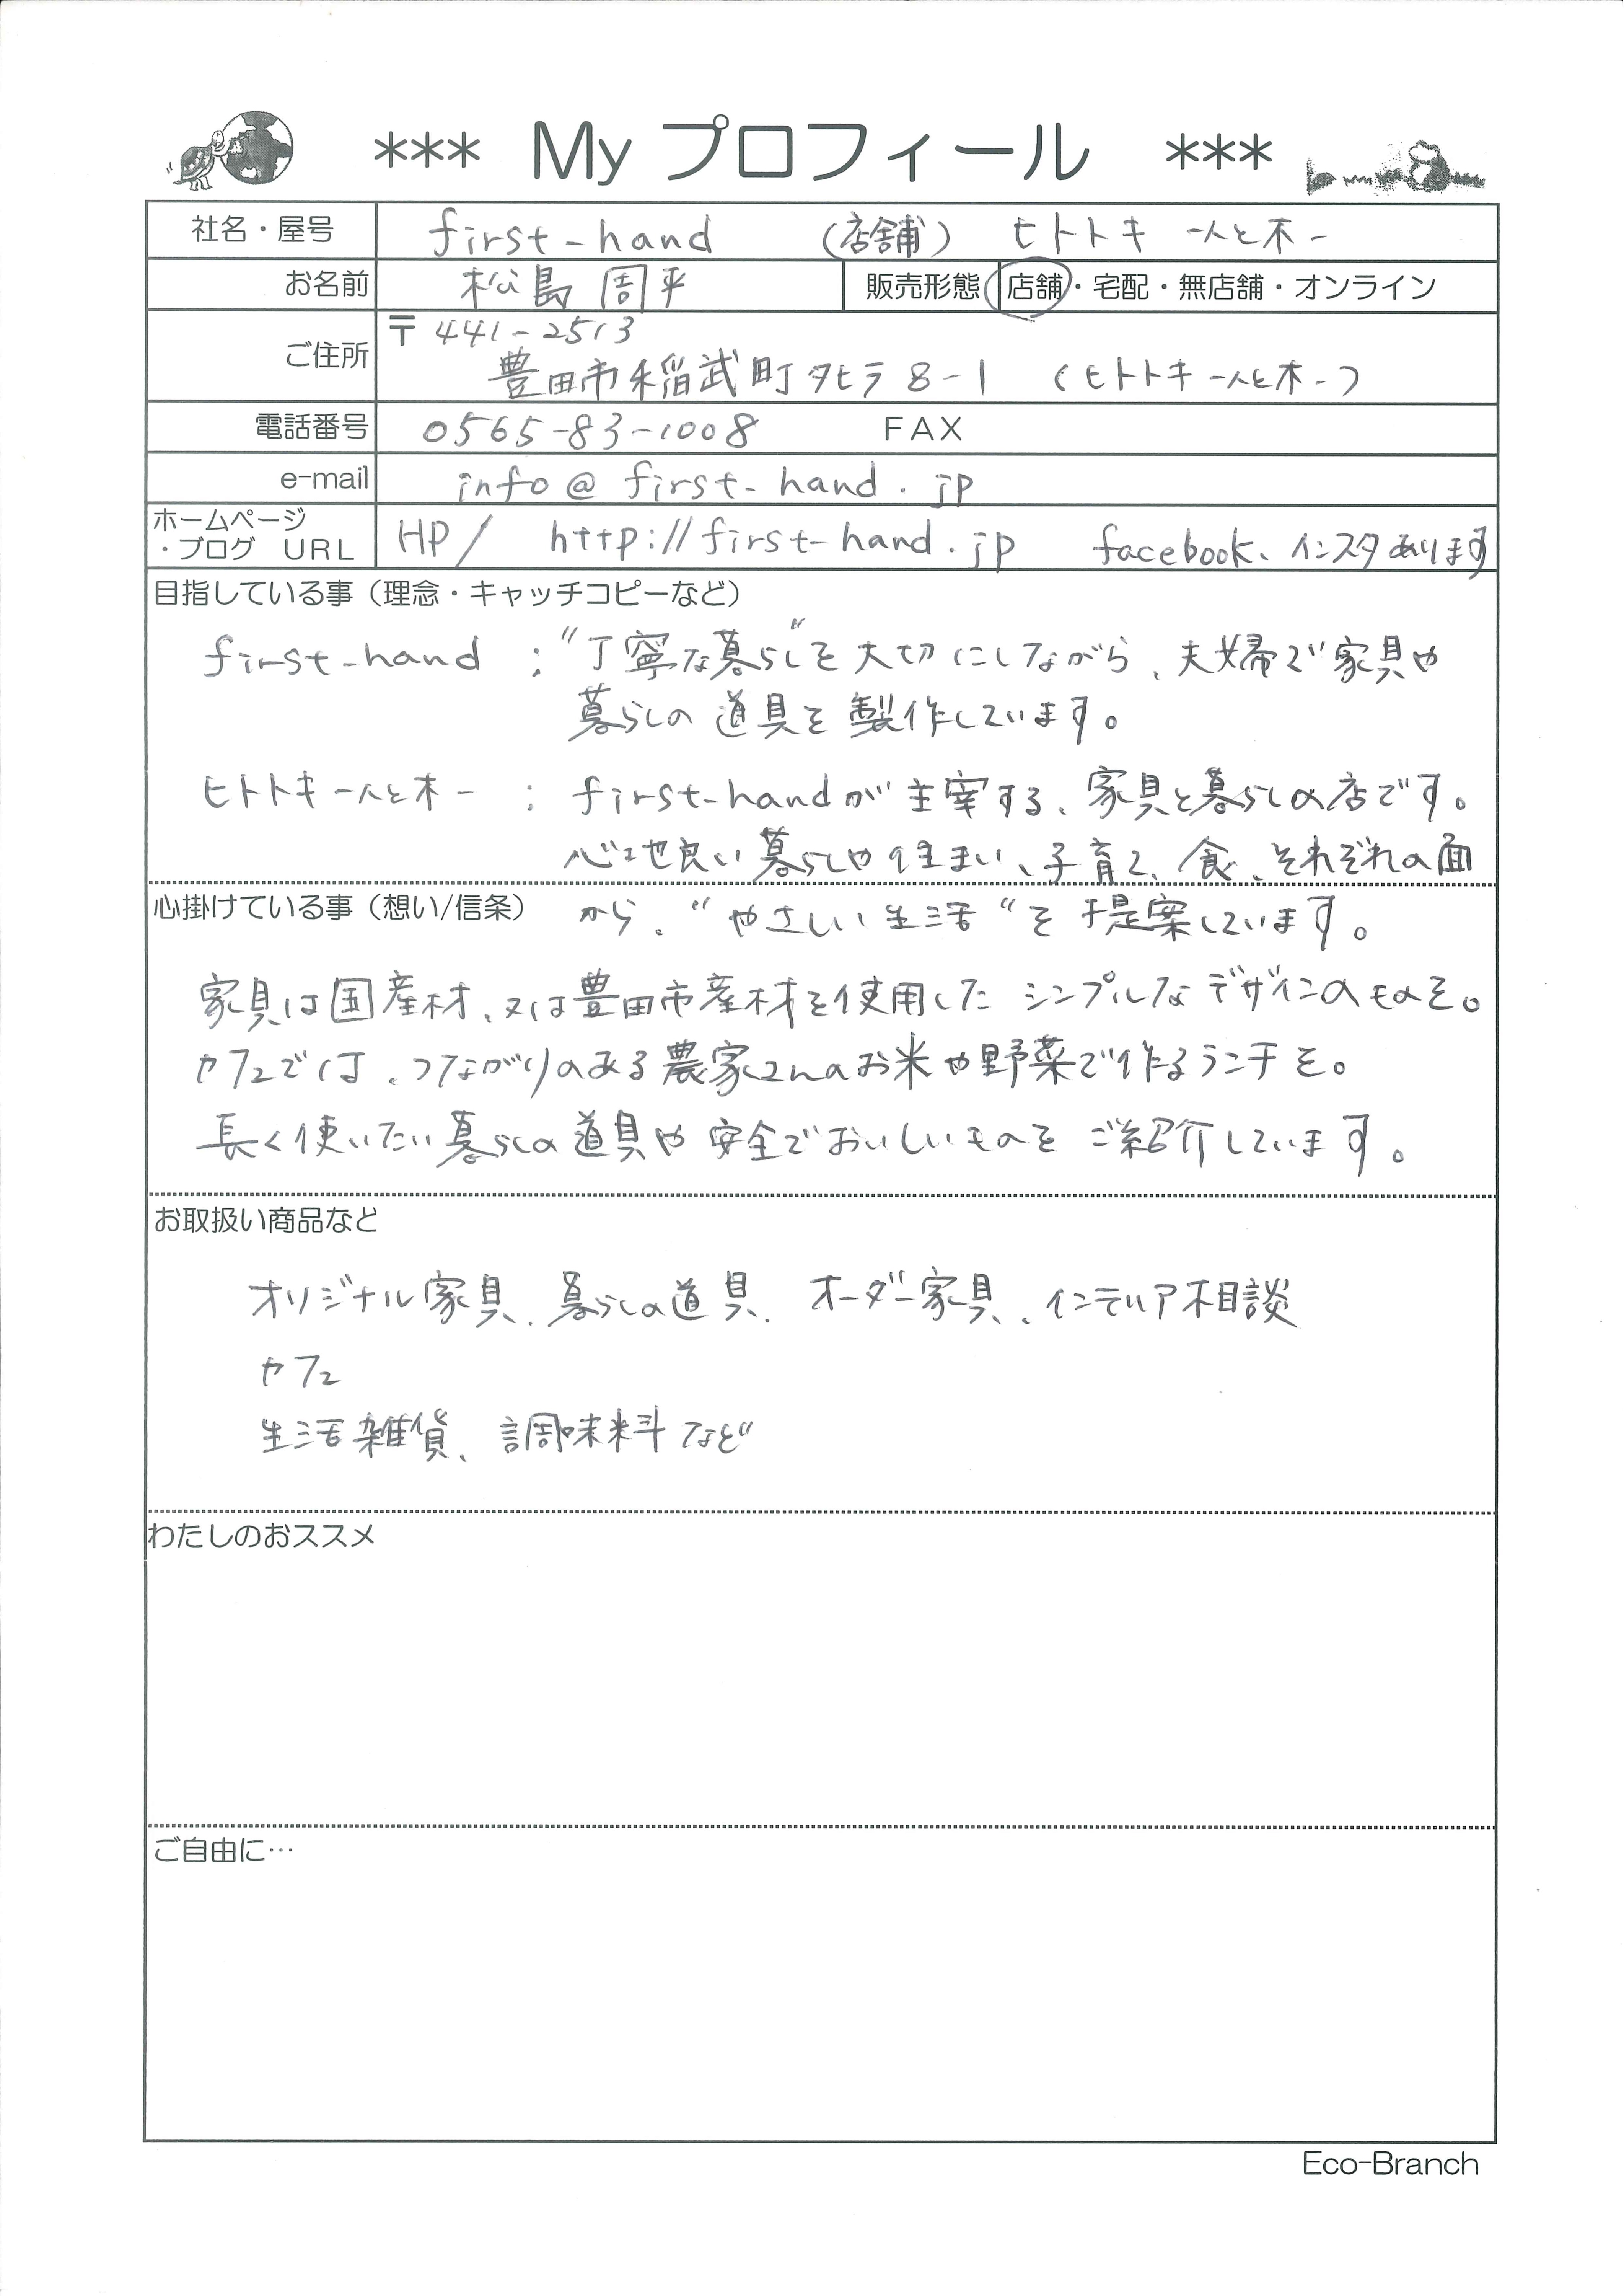 *** My プロフィール ***
社名・屋号 first-hand (店舗) ヒトトキ ー人と木ー
お名前 松島 周平 販売形態 店舗・宅配・無店舗・オンライン
〒441-2513
ご住所 豊田市稲武町タヒラ8-1 (ヒトトキ ー人と木ー)
電話番号 0565-83-1008 FAX
e-mail info@first-hand.jp
ホームページ
・ブログ URL HP/ http://first-hand.jp facebook、インスタあります
目指している事(理念・キャッチコピーなど)
first-hand : "丁寧な暮らし"を大切にしながら、夫婦で家具や
暮らしの道具を製作しています。
ヒトトキ ー人と木ー : first-handが主宰する、家具と暮らしの店です。
心地良い暮らしや住まい、子育て、食、それぞれの面
心掛けている事(想い/信条) から、"やさしい生活"を提案しています。
家具は国産材、又は豊田市産材を使用したシンプルなデザインのものを。
カフェでは、つながりのある農家さんのお米や野菜で作るランチを。
長く使いたい暮らしの道具や安全でおいしいものをご紹介しています。
お取扱い商品など
オリジナル家具、暮らしの道具、オーダー家具、インテリア相談
カフェ
生活雑貨、調味料など
わたしのおススメ
ご自由に…
Eco-Branch